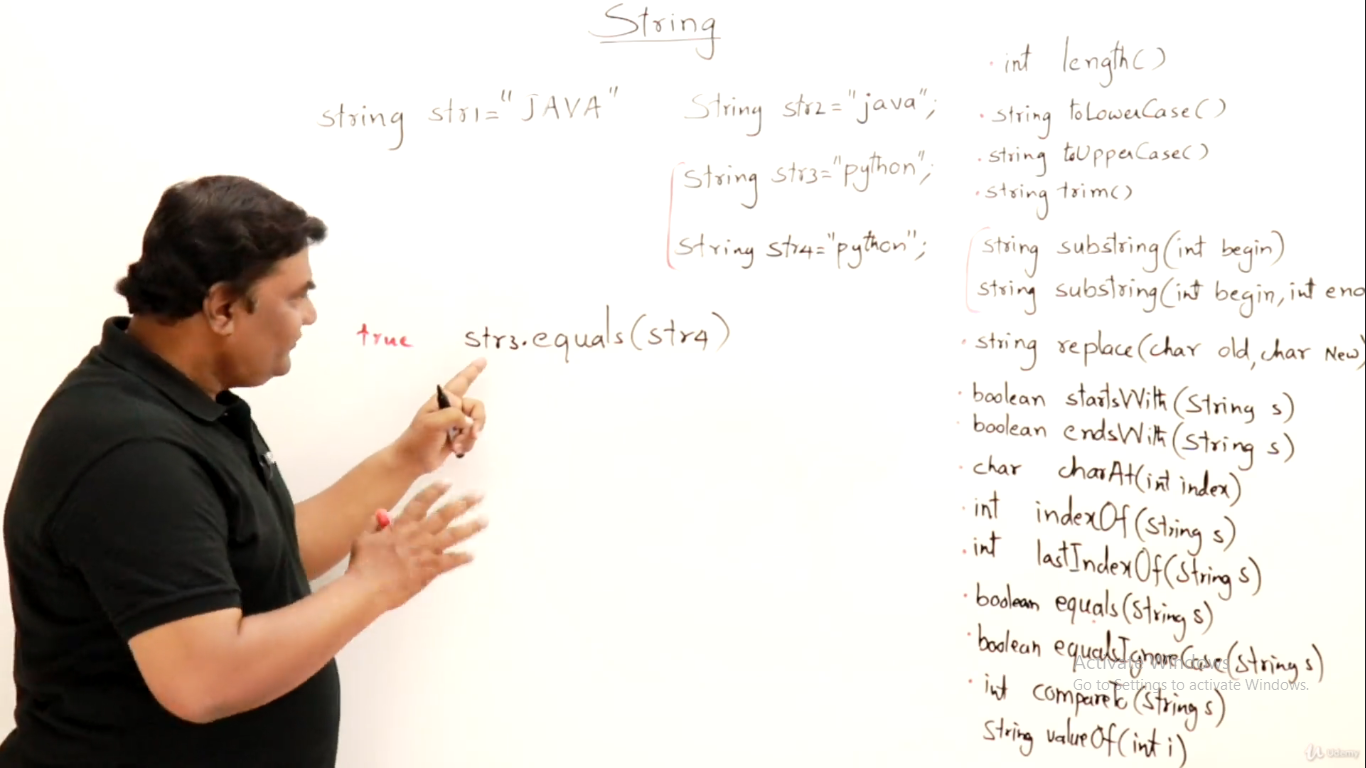 String
string str1="JAVA"
String str2="java";
String str3="python";
String str4="python";
true str3.equals(str4)
· int length()
· string toLowerCase()
· string toUpperCase()
· string trim()
string substring(int begin)
string substring(int begin, int end
· string replace(char old, char New)
· boolean startsWith(String s)
· boolean endsWith(String s)
· char charAt(int index)
· int indexOf(String s)
· int lastIndexOf(String s)
· boolean equals(String s)
· boolean equalsIgnoreCase(String s)
· int compareTo(String s)
String valueOf(int i)
Activate Windows
Go to Settings to activate Windows.
Udemy